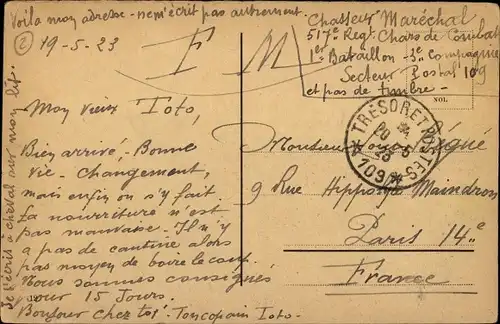 Voila mon adresse - ne m'écrit pas autrement.
2
19-5-23
F M
Chasseur Maréchal
517e Regt Chars de Combat
1er Bataillon - 3e Compagnie
Secteur Postal 109
et pas de timbre -
Mon vieux Toto,
Bien arrivé, - Bonne
vie - Changement,
mais enfin on s'y fait
La nourriture n'est
pas mauvaise - Il n'y
a pas de cantine alors
pas moyen de boire le coup.
Nous sommes consignés
pour 15 Jours.
Bonjour chez toi - Ton copain Toto -
Je t'écris à cheval sur mon lit.
TRÉSOR ET POSTES
20 - 5
23
* 109 *
Monsieur
9 Rue Hippolyte Maindron
Paris 14e
France